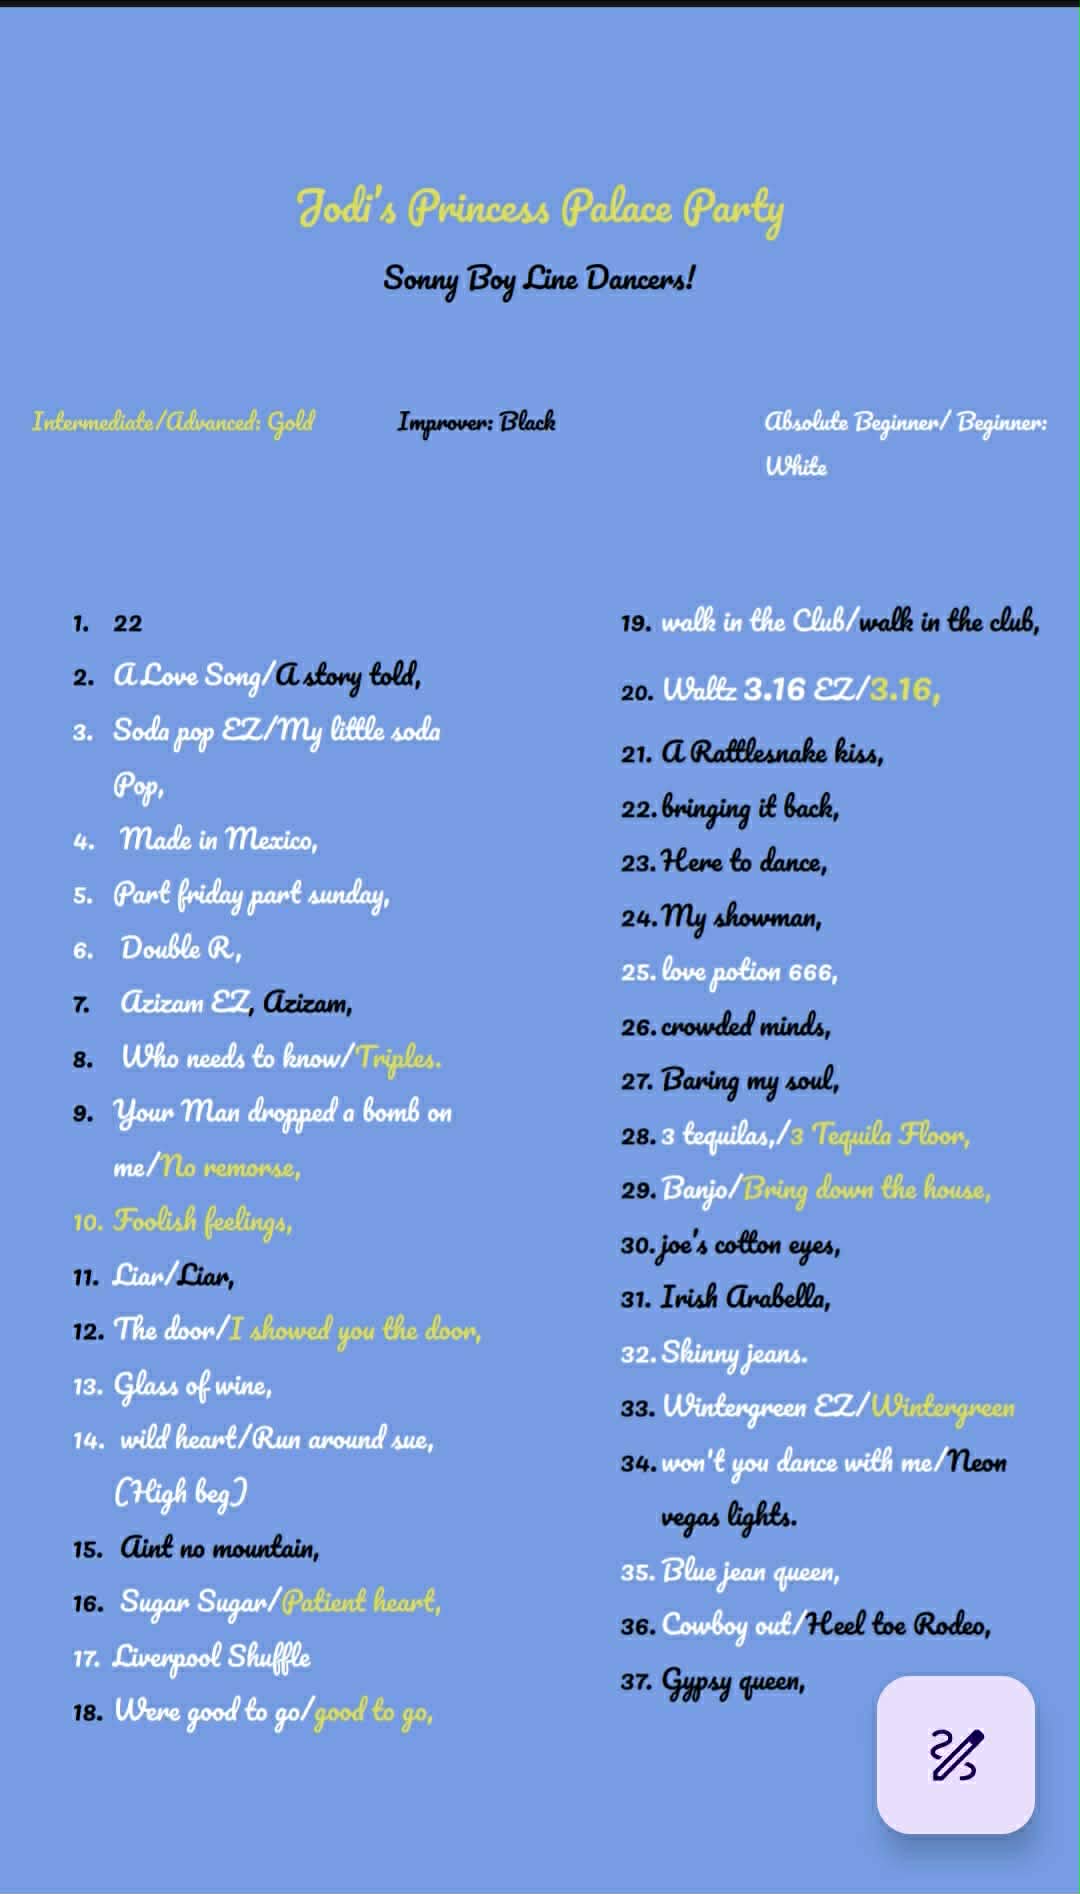 Jodi's Princess Palace Party
Sonny Boy Line Dancers!
Intermediate/Advanced: Gold
Improver: Black
Absolute Beginner/ Beginner:
White
1. 22
2. A Love Song/A story told,
3. Soda pop EZ/My little soda
Pop,
4. Made in Mexico,
5. Part friday part sunday,
6. Double R,
7. Azizam EZ, Azizam,
8. Who needs to know/Triples.
9. Your Man dropped a bomb on
me/No remorse,
10. Foolish feelings,
11. Liar/Liar,
12. The door/I showed you the door,
13. Glass of wine,
14. wild heart/Run around sue,
(High beg)
15. Aint no mountain,
16. Sugar Sugar/Patient heart,
17. Liverpool Shuffle
18. Were good to go/good to go,
19. walk in the Club/walk in the club,
20. Waltz 3.16 EZ/3.16,
21. A Rattlesnake kiss,
22. bringing it back,
23. Here to dance,
24. My showman,
25. love potion 666,
26. crowded minds,
27. Baring my soul,
28. 3 tequilas,/3 Tequila Floor,
29. Banjo/Bring down the house,
30. joe's cotton eyes,
31. Irish Arabella,
32. Skinny jeans.
33. Wintergreen EZ/Wintergreen
34. won't you dance with me/Neon
vegas lights.
35. Blue jean queen,
36. Cowboy out/Heel toe Rodeo,
37. Gypsy queen,